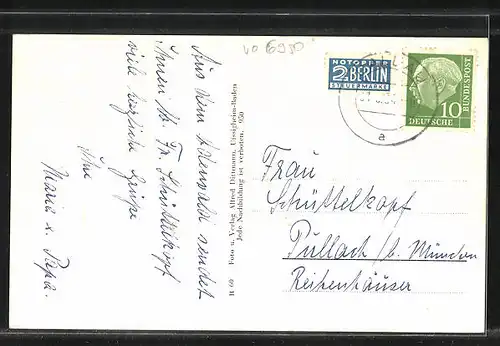 Aus dem Odenwald sendet
Ihnen lb. Fr. Schüttelkopf
viele herzliche Grüsse
Ihre
Maria u. Papa.
R 69 Foto u. Verlag Alfred Dittmann, Uissigheim-Baden
Jede Nachbildung ist verboten. 950
NOTOPFER
2 BERLIN
STEUERMARKE
a
10
DEUTSCHE
BUNDESPOST
Frau
Schüttelkopf
Pullach / b. München
Reihenhäuser